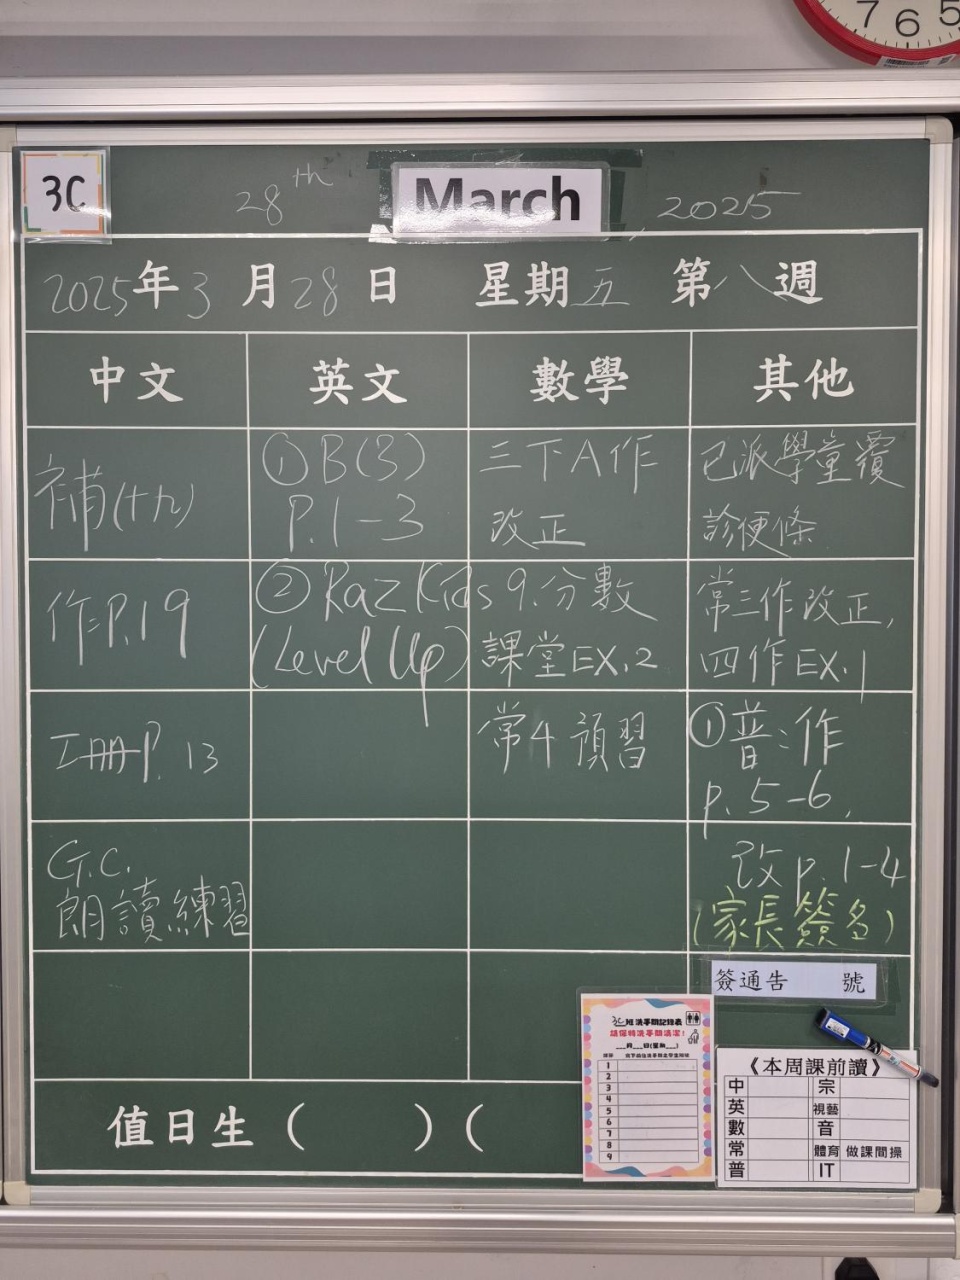 7 6 5
3C
28th March 2025
2025年3月28日 星期五 第八週
中文 英文 數學 其他
補(十九)
①B(3)
P.1-3
三下A作
改正
已派學童覆
診便條
作:P.19
②Raz Kids
(Level Up)
9.分數
課堂EX.2
常三作改正,
四作EX.1
工冊P.13
常4預習
①普:作
p.5-6,
G.C.
朗讀練習
改p.1-4
(家長簽名)
簽通告 號
3C班洗手間記錄表
請保持洗手間清潔!
___月___日(星期___)
1
2
3
4
5
6
7
8
9
《本周課前讀》
中 宗
英 視藝
數 音
常 體育 做課間操
普 IT
值日生( )(